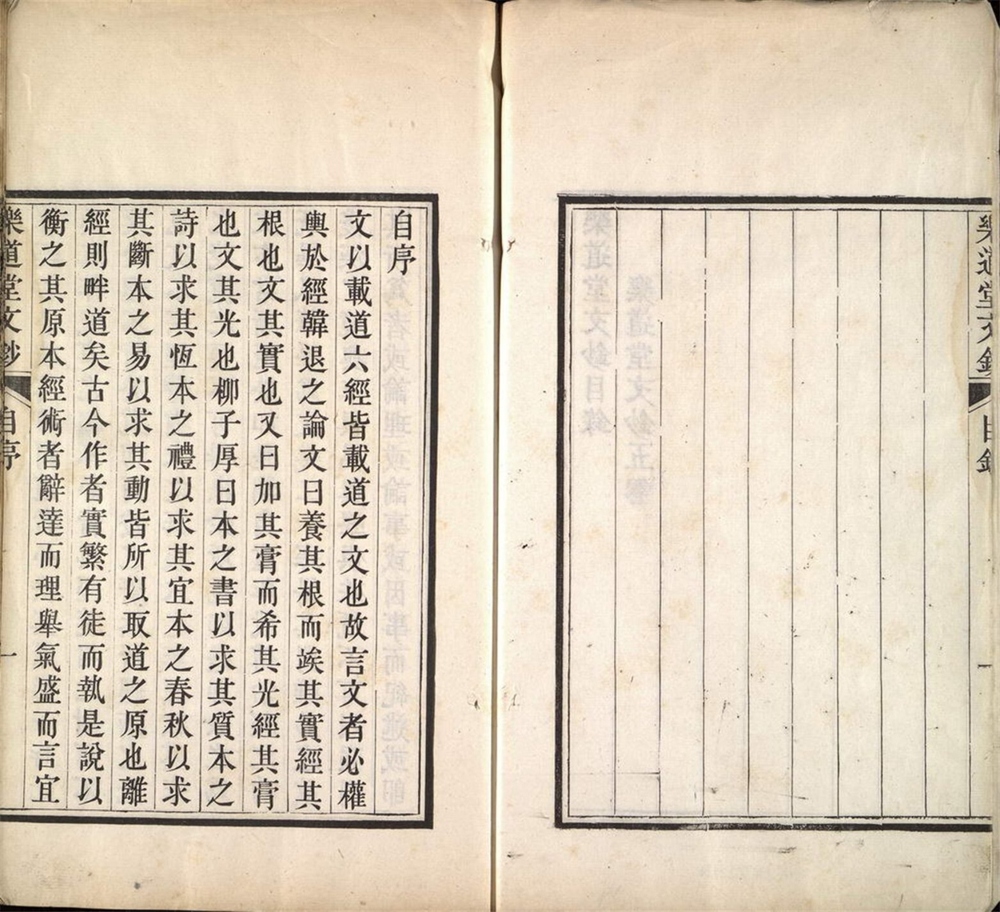 樂道堂文鈔 目錄 一
自序
文以載道六經皆載道之文也故言文者必權
輿於經韓退之論文曰養其根而竢其實經其
根也文其實也又曰加其膏而希其光經其膏
也文其光也柳子厚曰本之書以求其質本之
詩以求其恆本之禮以求其宜本之春秋以求
其斷本之易以求其動皆所以取道之原也離
經則畔道矣古今作者實繁有徒而執是說以
衡之其原本經術者辭達而理舉氣盛而言宜
樂道堂文鈔 自序 一